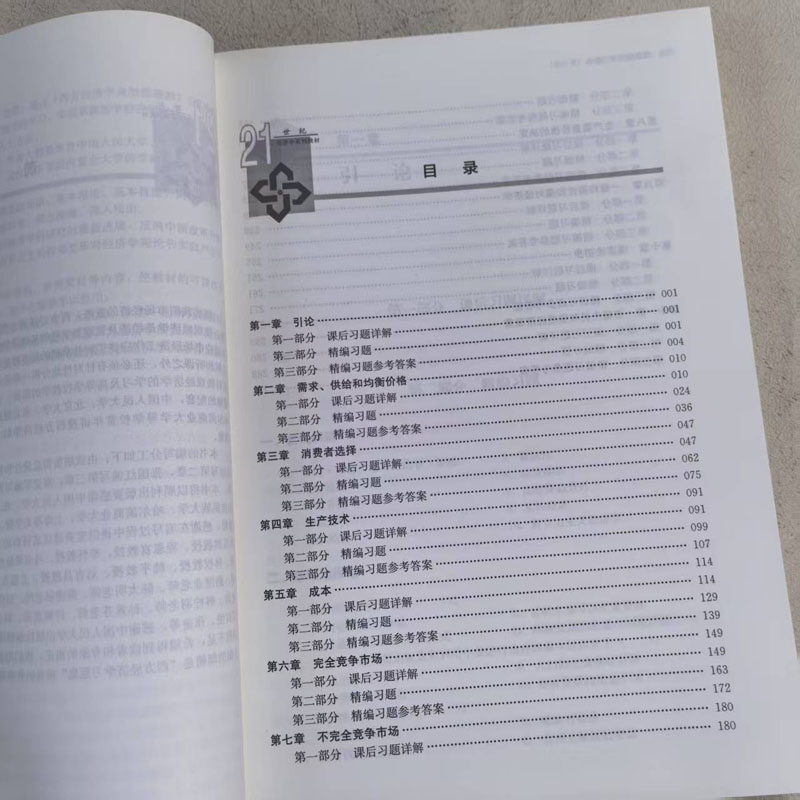 21
世 纪
经济学系列教材
目 录
第一章 引论 001
第一部分 课后习题详解 001
第二部分 精编习题 001
第三部分 精编习题参考答案 004
第二章 需求、供给和均衡价格 010
第一部分 课后习题详解 010
第二部分 精编习题 024
第三部分 精编习题参考答案 036
第三章 消费者选择 047
第一部分 课后习题详解 047
第二部分 精编习题 062
第三部分 精编习题参考答案 075
第四章 生产技术 091
第一部分 课后习题详解 091
第二部分 精编习题 099
第三部分 精编习题参考答案 107
第五章 成本 114
第一部分 课后习题详解 114
第二部分 精编习题 129
第三部分 精编习题参考答案 139
第六章 完全竞争市场 149
第一部分 课后习题详解 149
第二部分 精编习题 163
第三部分 精编习题参考答案 172
第七章 不完全竞争市场 180
第一部分 课后习题详解 180